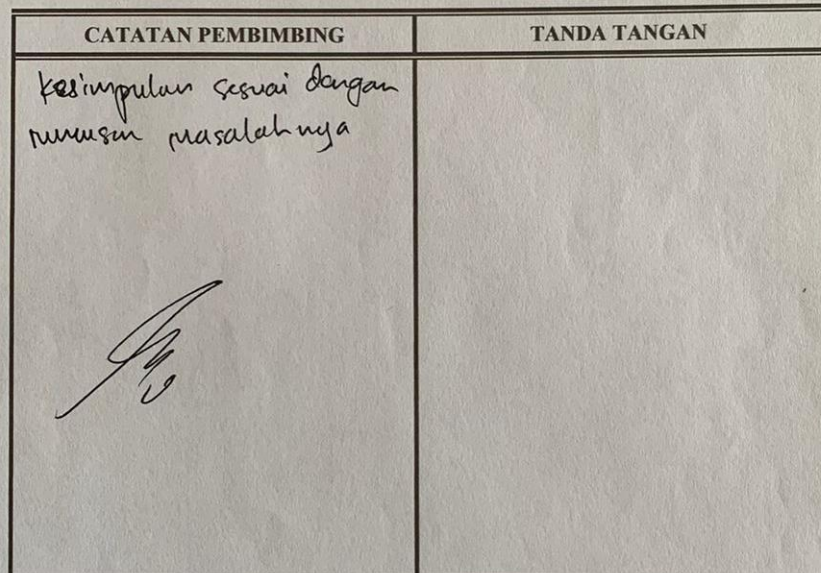 CATATAN PEMBIMBING
TANDA TANGAN
Kesimpulan sesuai dengan
rumusan masalahnya